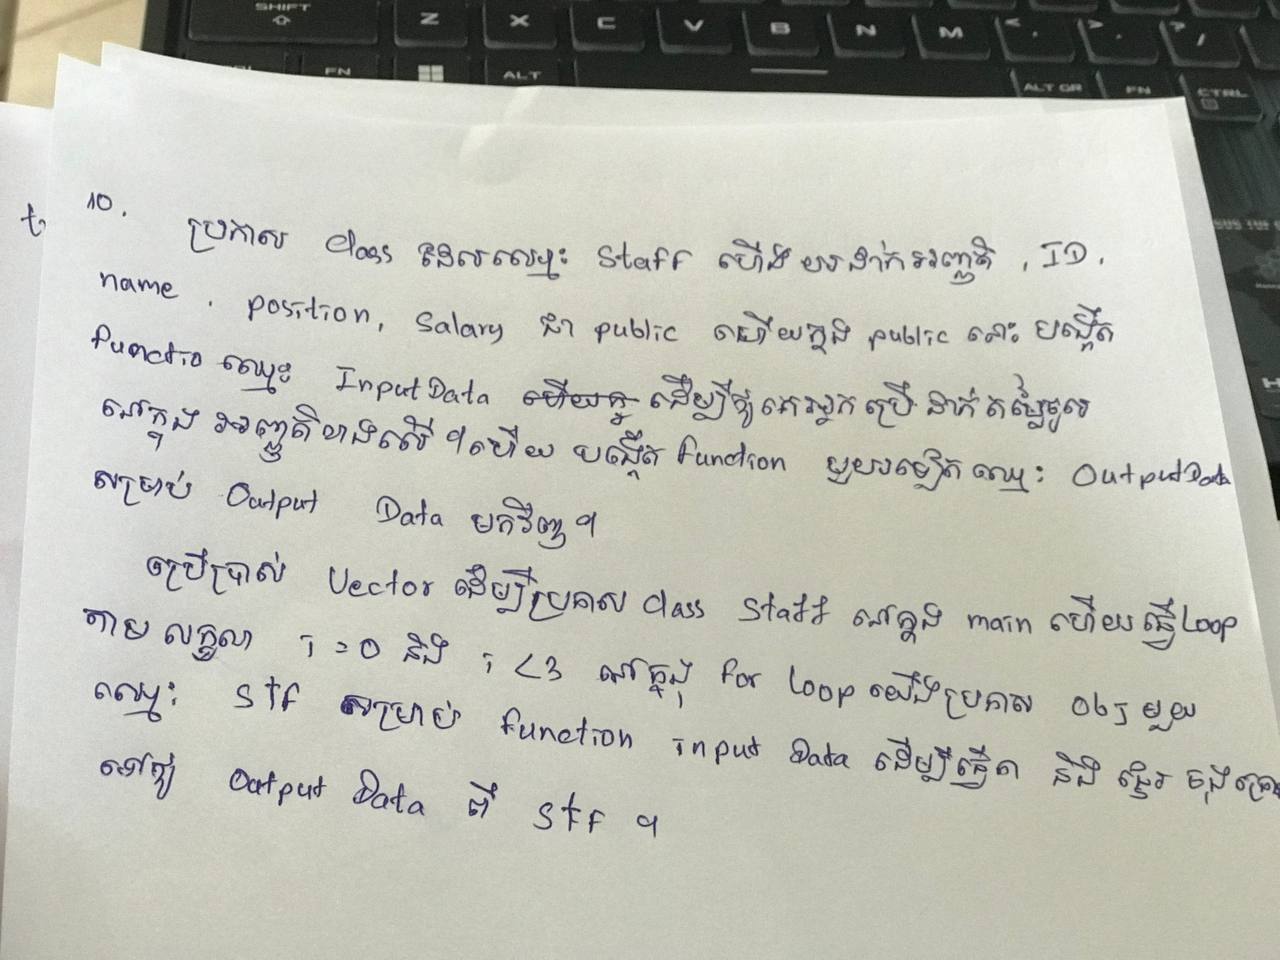 SHIFT
Z X C V B N M < , > . ? /
FN ALT ALT GR FN CTRL
10.
ប្រកាស Class ដែលឈ្មោះ Staff ហើងយកដាក់អញ្ញតិ , ID ,
name , position, Salary ជា public ហើយក្នុង public នោះ បង្កើត
functio ឈ្មោះ InputData ដើម្បីឱ្យគេអ្នកប្រើដាក់តម្លៃចូល
នៅក្នុង អញ្ញតិខាងលើ ។ហើយ បង្កើត function មួយទៀតឈ្មោះ OutputData
សម្រាប់ Output Data មកវិញ ។
ប្រើប្រាស់ Vector ដើម្បីប្រកាស Class Staff នៅក្នុង main ហើយធ្វើ Loop
តាមលក្ខណា i = 0 និង i < 3 នៅក្នុង for loop យើងប្រកាស Obj មួយ
ឈ្មោះ Stf សម្រាប់ function input Data ដើម្បីធ្វើការ និង ផ្ទេរ ចុងក្រោយ
ទៅឱ្យ Output Data ពី Stf ។